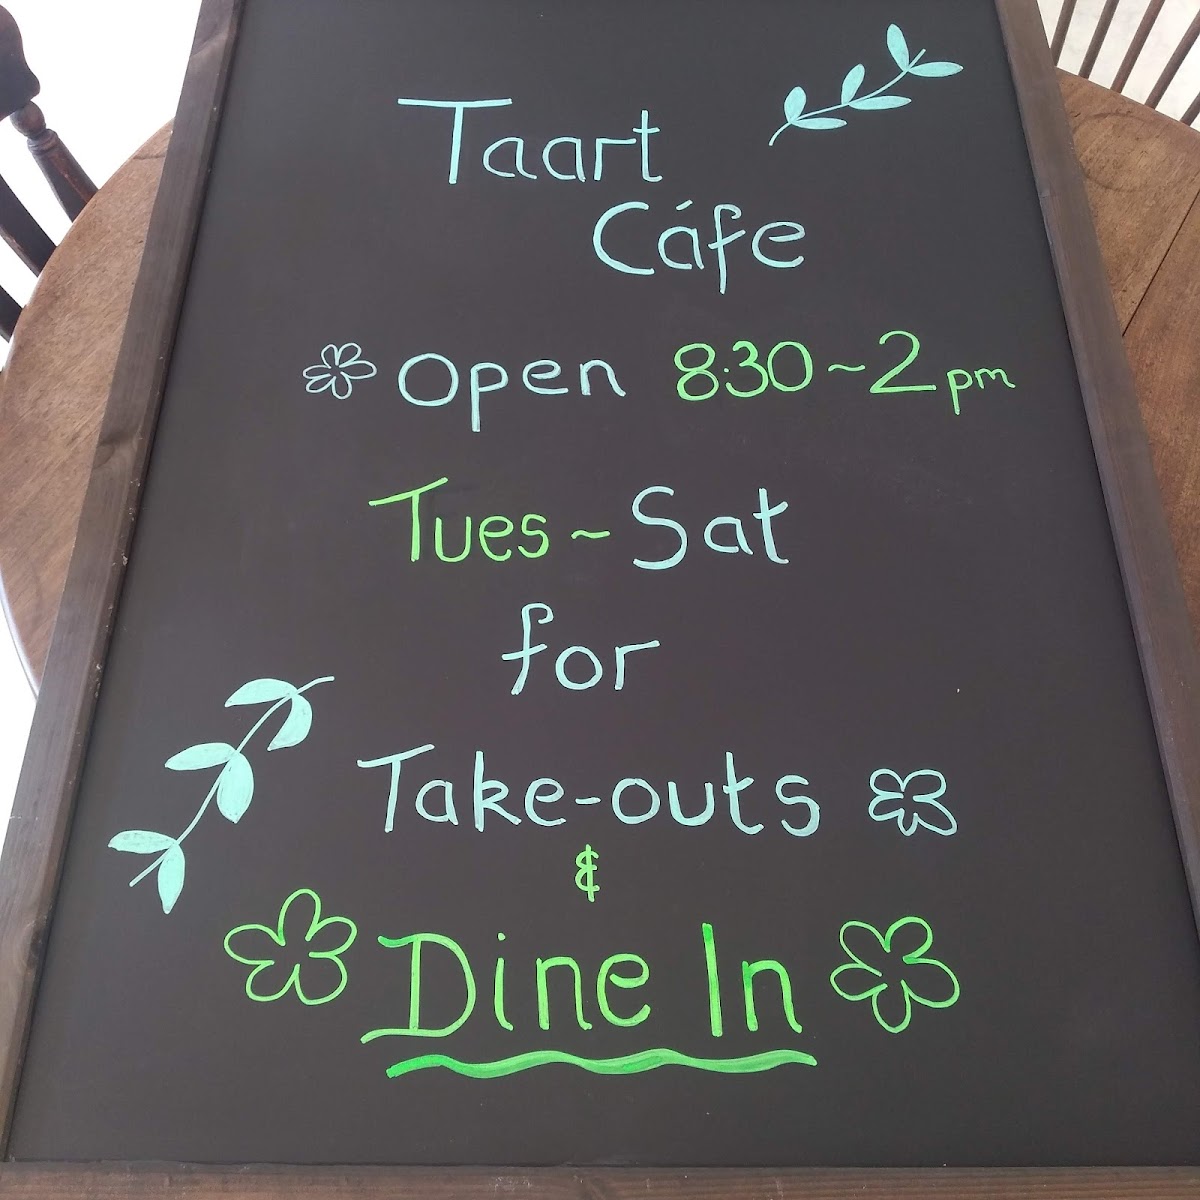 Taart
Cáfe
Open 8:30 ~ 2pm
Tues ~ Sat
for
Take-outs
&
Dine In